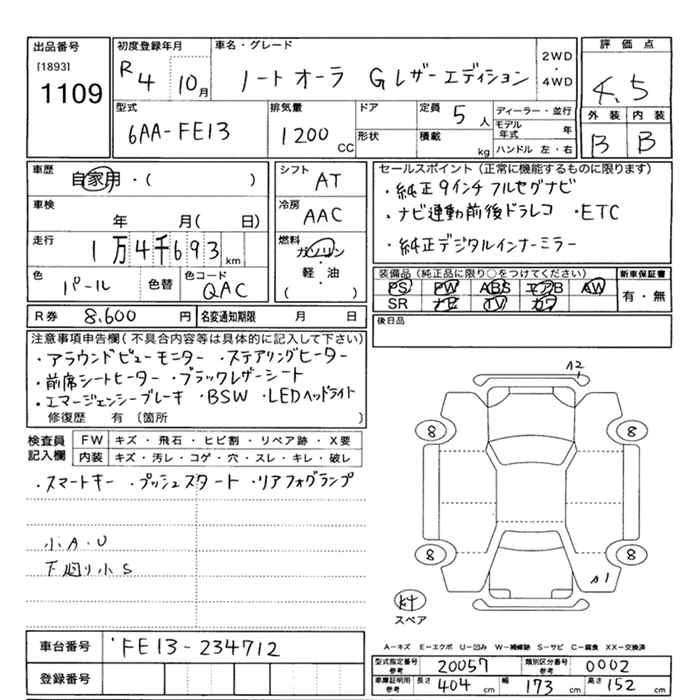 出品番号
[1893]
1109
初度登録年月
R4 10月
車名・グレード
ノート オーラ Gレザーエディション
2WD
・
4WD
評価点
4.5
外装 内装
B B
型式
6AA-FE13
排気量
1200 CC
ドア
形状
定員 5人
積載 kg
ディーラー・並行
モデル年式 年
ハンドル 左・右
車歴
自家用・( )
車検
年 月( 日)
走行
1万4千693 km
色
パール
色替
色コード
QAC
シフト
AT
冷房
AAC
燃料
ガソリン
・
軽・油
( )
セールスポイント(正常に機能するものに限ります)
・純正9インチフルセグナビ
・ナビ連動前後ドラレコ ・ETC
・純正デジタルインナーミラー
装備品(純正品に限り○をつけてください)
PS PW ABS エアB AW
SR ナビ TV カワ
新車保証書
有・無
後日品
R券 8,600 円
名変通知期限 月 日
注意事項申告欄(不具合内容等は具体的に記入して下さい)
・アラウンドビューモニター ・ステアリングヒーター
・前席シートヒーター ・ブラックレザーシート
・エマージェンシーブレーキ ・BSW ・LEDヘッドライト
修復歴 有 (箇所 )
検査員記入欄
FW キズ・飛石・ヒビ割・リペア跡・X要
内装 キズ・汚レ・コゲ・穴・スレ・キレ・破レ
・スマートキー ・プッシュスタート ・リアフォグランプ
小A.U
下廻り小S
A2
8 8
8 8
A1
スペア
A-キズ E-エクボ U-凹み W-補修跡 S-サビ C-腐食 XX-交換済
車台番号 FE13-234712
登録番号
型式指定番号 参考 20057
類別区分番号 参考 0002
車庫証明用 参考 長さ 404 cm 幅 173 cm 高さ 152 cm